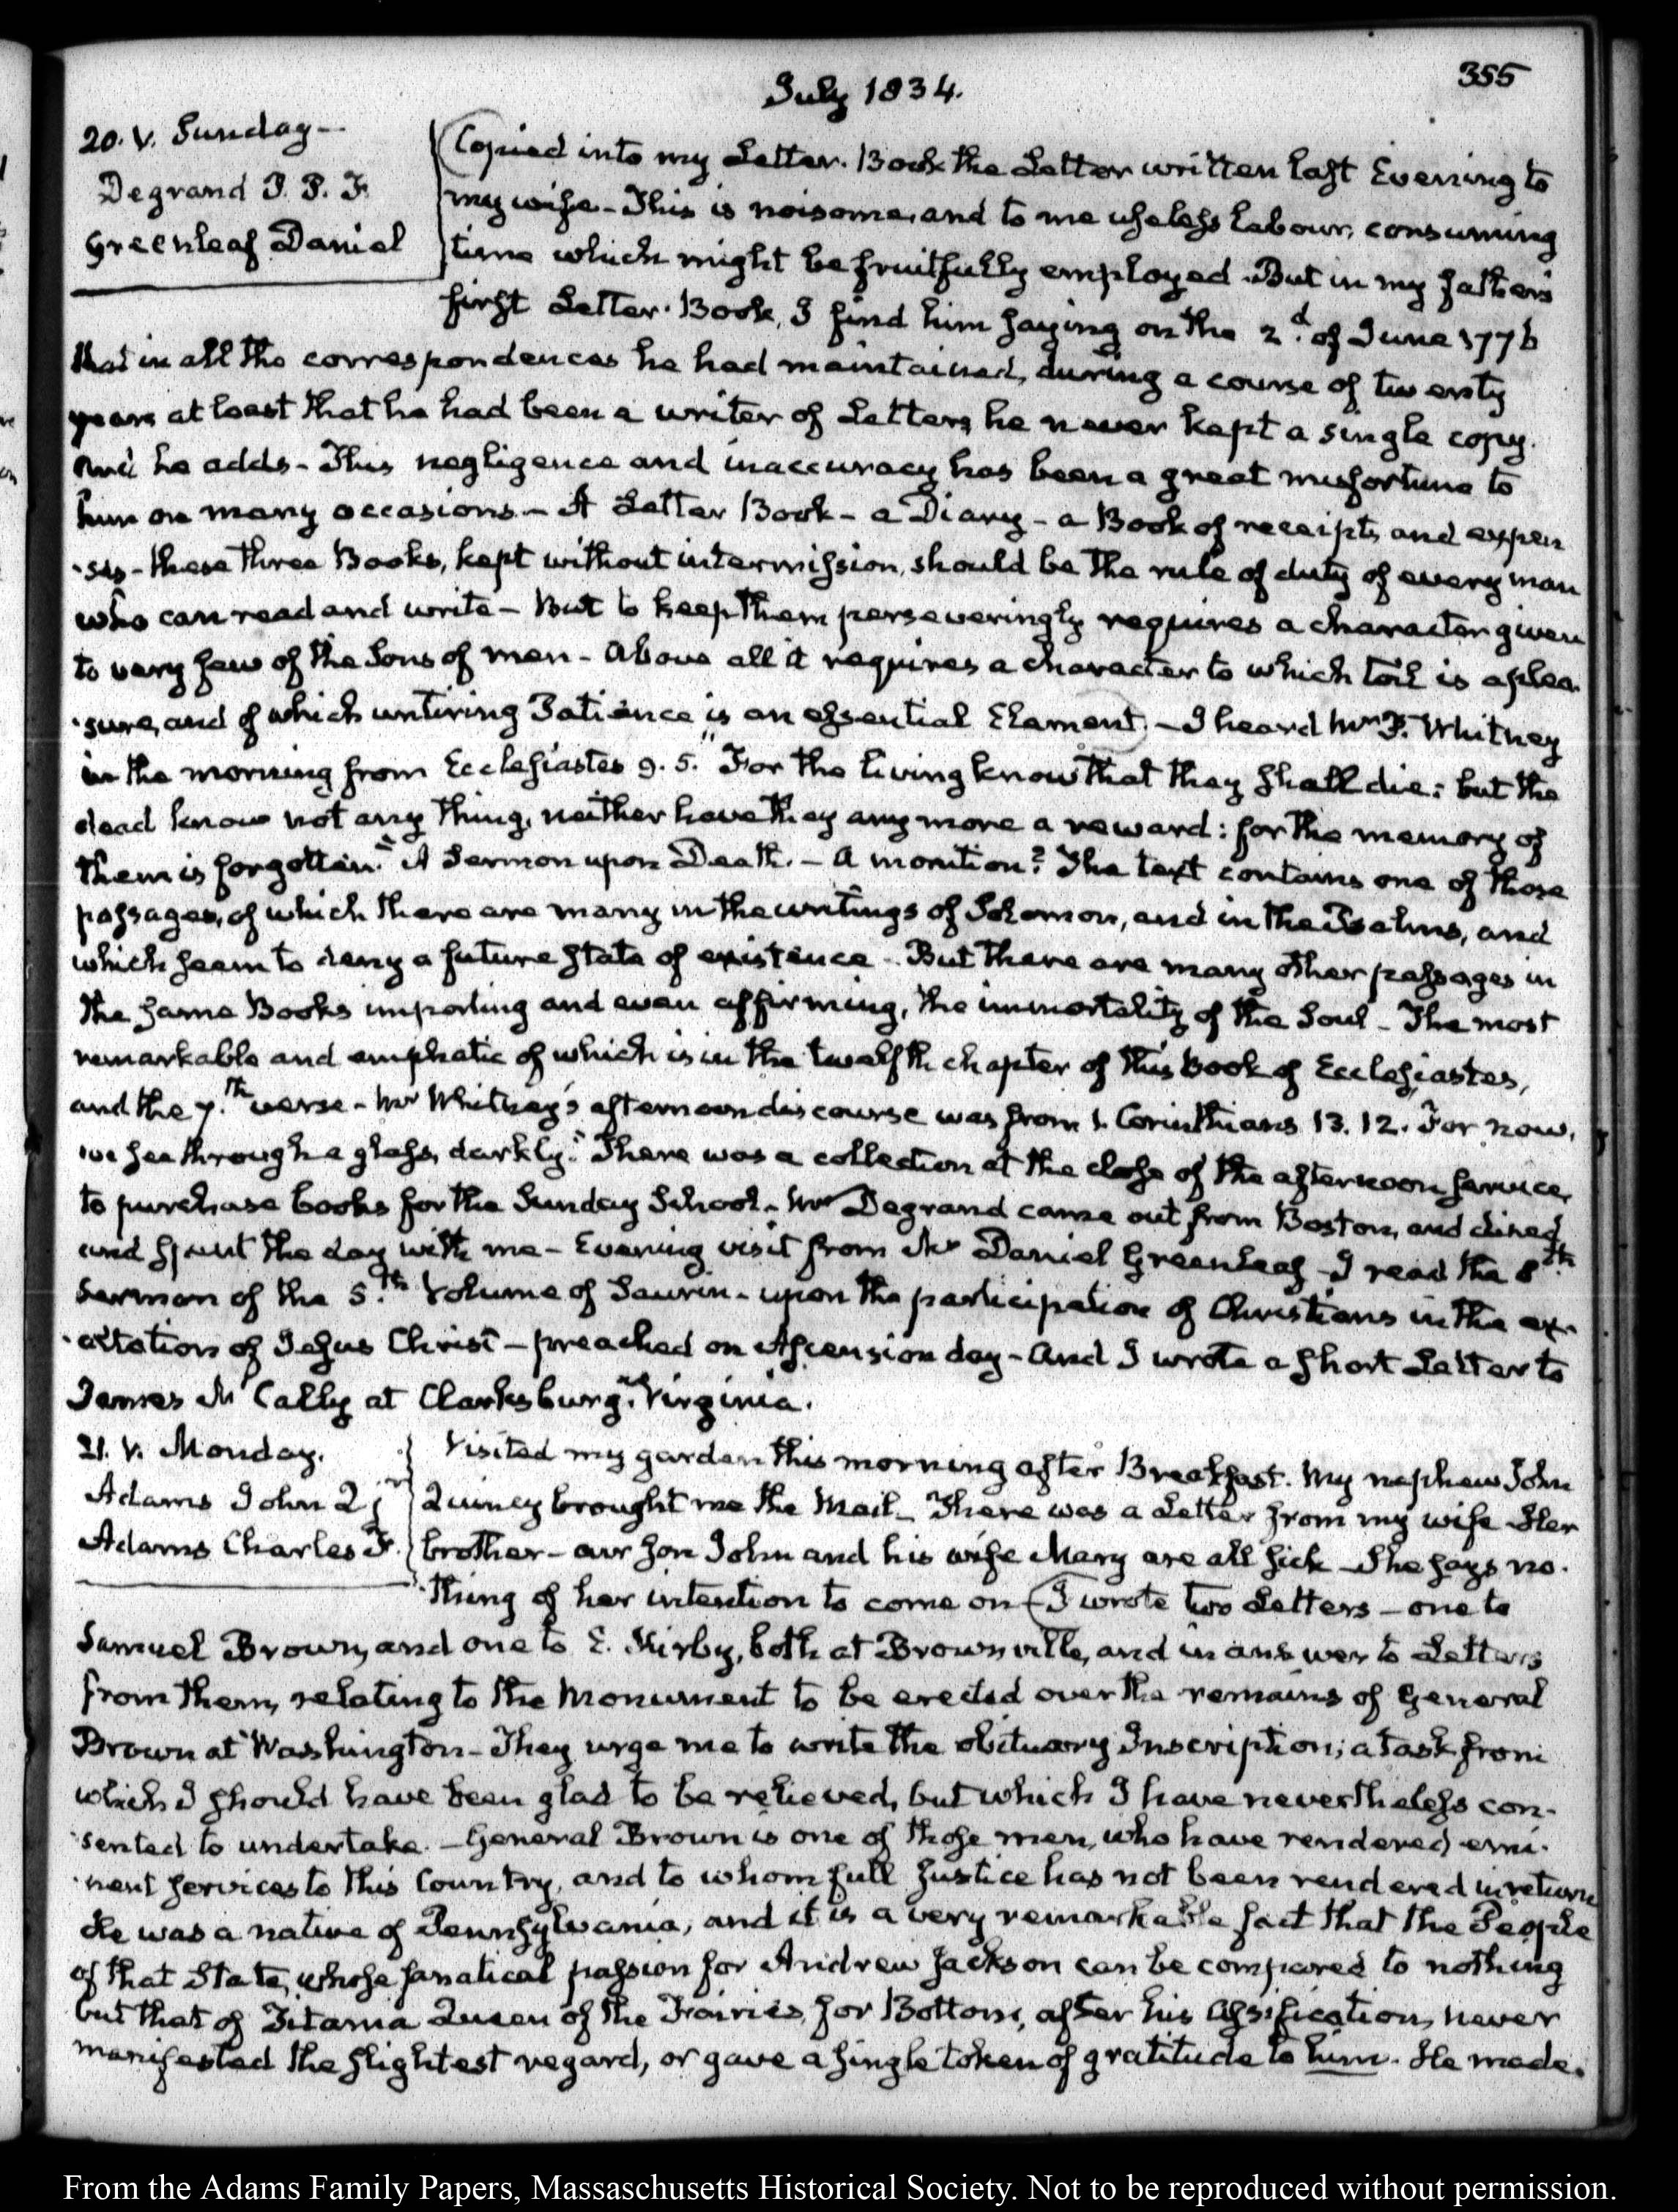 355
July 1834.
20. V. Sunday—
Degrand P. P. F.
Greenleaf Daniel
Copied into my Letter-Book the Letter written last Evening to
my wife— This is noisome, and to me useless labour, consuming
time which might be fruitfully employed. But in my father's
first Letter-Book, I find him saying on the 2.d of June 1776
that in all the correspondences he had maintained, during a course of twenty
years at least that he had been a writer of Letters, he never kept a single copy.
And he adds— This negligence and inaccuracy has been a great misfortune to
him on many occasions.— A Letter Book— a Diary— a Book of receipts and expen
-ses— these three Books, kept without intermission, should be the rule of duty of every man
who can read and write— But to keep them perseveringly requires a character given
to very few of the Sons of men— Above all it requires a character to which toil is a plea-
-sure, and of which untiring Patience is an essential Element.— I heard Mr F. Whitney
in the morning from Ecclesiastes 9. 5. "For the living know that they shall die: but the
dead know not any thing, neither have they any more a reward: for the memory of
them is forgotten." A Sermon upon Death.— A monition? The text contains one of those
passages, of which there are many in the writings of Solomon, and in the Psalms, and
which seem to deny a future state of existence— But there are many other passages in
the same Books importing and even affirming, the immortality of the Soul— The most
remarkable and emphatic of which is in the twelfth chapter of this Book of Ecclesiastes,
and the 7.th verse— Mr Whitney's afternoon discourse was from 1. Corinthians 13. 12. For now,
we see through a glass, darkly." There was a collection at the close of the afternoon service,
to purchase books for the Sunday School— Mr Degrand came out from Boston, and dined
and spent the day with me— Evening visit from Mr Daniel Greenleaf— I read the 8th
Sermon of the 5.th Volume of Saurin— upon the participation of Christians in the ex-
-altation of Jesus Christ— preached on Ascension day— And I wrote a short Letter to
James McCally at Clarksburg, Virginia.
21. V. Monday.
Adams John Q jr
Adams Charles F.
Visited my garden this morning after Breakfast. My nephew John
Quincy brought me the Mail— There was a Letter from my wife Her
brother— our Son John and his wife Mary are all sick— She says no-
-thing of her intention to come on— I wrote two Letters— one to
Samuel Brown, and one to E. Kirby, both at Brownville, and in answer to Letters
from them, relating to the Monument to be erected over the remains of General
Brown at Washington— They urge me to write the obituary Inscription; a task from
which I should have been glad to be relieved, but which I have nevertheless con-
-sented to undertake.— General Brown is one of those men, who have rendered emi-
-nent services to this Country, and to whom full justice has not been rendered in return
He was a native of Pennsylvania, and it is a very remarkable fact that the People
of that State, whose fanatical passion for Andrew Jackson can be compared to nothing
but that of Titania Queen of the Fairies, for Bottom, after his Assification, never
manifested the slightest regard, or gave a single token of gratitude to him. He made.
From the Adams Family Papers, Massachusetts Historical Society. Not to be reproduced without permission.